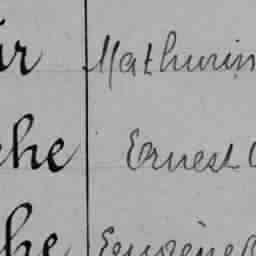 ir Mathurin
che Ernest
he Eugène